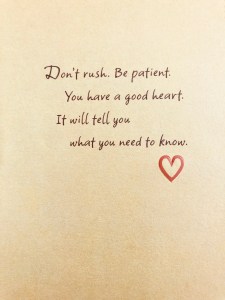 Don't rush. Be patient.
You have a good heart.
It will tell you
what you need to know.